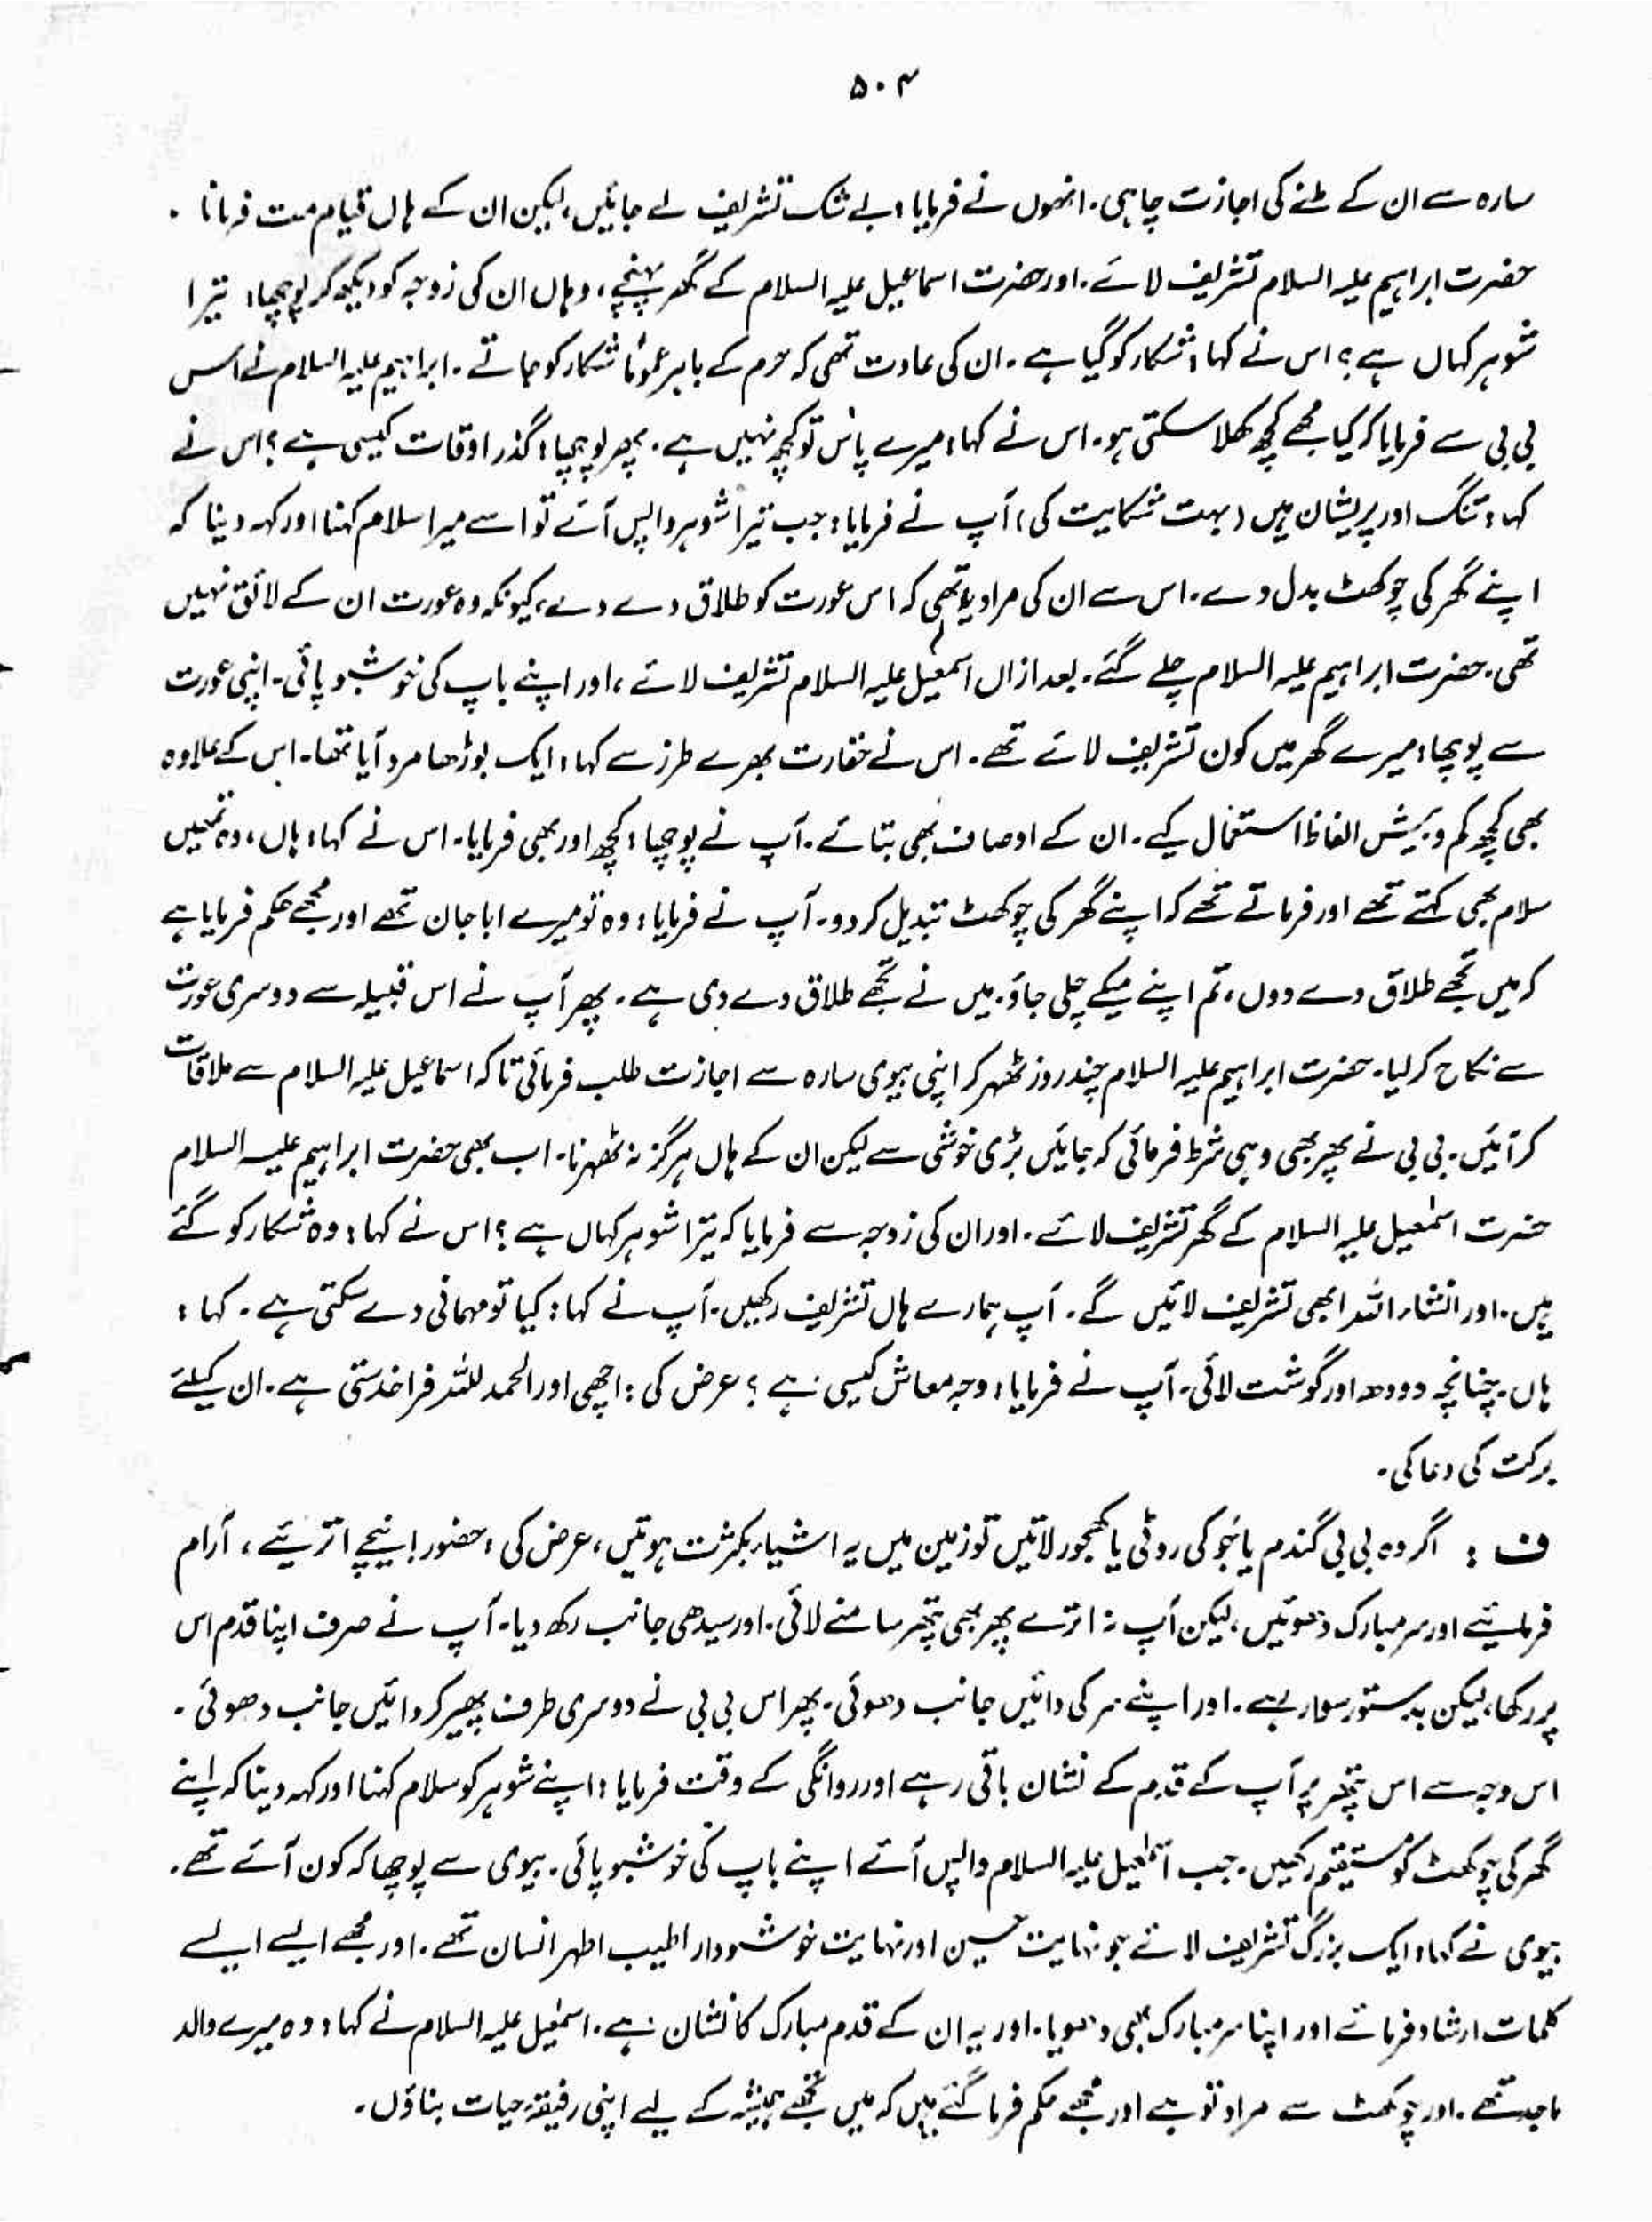 ۵۰۴
سارہ سے ان کے ملنے کی اجازت چاہی۔ انھوں نے فرمایا : بے شک تشریف لے جائیں، لیکن ان کے ہاں قیام مت فرمانا ۔
حضرت ابراہیم علیہ السلام تشریف لائے۔ اور حضرت اسماعیل علیہ السلام کے گھر پہنچے، وہاں ان کی زوجہ کو دیکھ کر پوچھا : تیرا
شوہر کہاں ہے ؟ اس نے کہا : شکار کو گیا ہے ۔ ان کی عادت تھی کہ حرم کے باہر عموماً شکار کو جاتے ۔ ابراہیم علیہ السلام نے اس
بی بی سے فرمایا کہ کیا مجھے کچھ کھلا سکتی ہو۔ اس نے کہا : میرے پاس تو کچھ نہیں ہے ۔ پھر پوچھا : گذر اوقات کیسی ہے ؟ اس نے
کہا : تنگ اور پریشان ہیں (بہت شکایت کی) آپ نے فرمایا : جب تیرا شوہر واپس آئے تو اسے میرا سلام کہنا اور کہہ دینا کہ
اپنے گھر کی چوکھٹ بدل دے ۔ اس سے ان کی مراد یہ تھی کہ اس عورت کو طلاق دے دے ، کیونکہ وہ عورت ان کے لائق نہیں
تھی ۔ حضرت ابراہیم علیہ السلام چلے گئے ۔ بعد ازاں اسمٰعیل علیہ السلام تشریف لائے ، اور اپنے باپ کی خوشبو پائی ۔ اپنی عورت
سے پوچھا : میرے گھر میں کون تشریف لائے تھے ۔ اس نے حقارت بھرے طرز سے کہا : ایک بوڑھا مرد آیا تھا ۔ اس کے علاوہ
بھی کچھ کم و بیش الفاظ استعمال کیے ۔ ان کے اوصاف بھی بتائے ۔ آپ نے پوچھا : کچھ اور بھی فرمایا ۔ اس نے کہا : ہاں ، وہ تمہیں
سلام بھی کہتے تھے اور فرماتے تھے کہ اپنے گھر کی چوکھٹ تبدیل کر دو ۔ آپ نے فرمایا : وہ تو میرے ابا جان تھے اور مجھے حکم فرمایا ہے
کہ میں تجھے طلاق دے دوں ، تم اپنے میکے چلی جاؤ ۔ میں نے تجھے طلاق دے دی ہے ۔ پھر آپ نے اس قبیلہ سے دوسری عورت
سے نکاح کر لیا ۔ حضرت ابراہیم علیہ السلام چند روز ٹھہر کر اپنی بیوی سارہ سے اجازت طلب فرمائی تاکہ اسماعیل علیہ السلام سے ملاقات
کر آئیں ۔ بی بی نے پھر بھی وہی شرط فرمائی کہ جائیں بڑی خوشی سے لیکن ان کے ہاں ہرگز نہ ٹھہرنا ۔ اب بھی حضرت ابراہیم علیہ السلام
حضرت اسمٰعیل علیہ السلام کے گھر تشریف لائے ۔ اور ان کی زوجہ سے فرمایا کہ تیرا شوہر کہاں ہے ؟ اس نے کہا : وہ شکار کو گئے
ہیں ۔ اور انشاء اللہ ابھی تشریف لائیں گے ۔ آپ ہمارے ہاں تشریف رکھیں ۔ آپ نے کہا : کیا تو مہمانی دے سکتی ہے ۔ کہا :
ہاں ۔ چنانچہ دودھ اور گوشت لائی ۔ آپ نے فرمایا : وجہ معاش کیسی ہے ؟ عرض کی : اچھی اور الحمد للہ فراخدستی ہے ۔ ان کیلئے
برکت کی دعا کی ۔
ف : اگر وہ بی بی گندم یا جَو کی روٹی یا کھجور لاتیں تو زمین میں یہ اشیاء بکثرت ہوتیں ، عرض کی : حضور ! نیچے اتریئے ، آرام
فرمائیے اور سر مبارک دھوئیں ، لیکن آپ نہ اترے پھر بھی پتھر سامنے لائی ۔ اور سیدھی جانب رکھ دیا ۔ آپ نے صرف اپنا قدم اس
پر رکھا ، لیکن بدستور سوار رہے ۔ اور اپنے سر کی دائیں جانب دھوئی ۔ پھر اس بی بی نے دوسری طرف پھیر کر دائیں جانب دھوئی ۔
اس وجہ سے اس پتھر پر آپ کے قدم کے نشان باقی رہے اور روانگی کے وقت فرمایا : اپنے شوہر کو سلام کہنا اور کہہ دینا کہ اپنے
گھر کی چوکھٹ کو مستقیم رکھیں ۔ جب اسمٰعیل علیہ السلام واپس آئے اپنے باپ کی خوشبو پائی ۔ بیوی سے پوچھا کہ کون آئے تھے ۔
بیوی نے کہا : ایک بزرگ تشریف لائے جو نہایت حسین اور نہایت خوشبودار اطیب اطہر انسان تھے ۔ اور مجھے ایسے ایسے
کلمات ارشاد فرمائے اور اپنا سر مبارک بھی دھویا ۔ اور یہ ان کے قدم مبارک کا نشان ہے ۔ اسمٰعیل علیہ السلام نے کہا : وہ میرے والد
ماجد تھے ۔ اور چوکھٹ سے مراد تو ہے اور مجھے حکم فرما گئے ہیں کہ میں تجھے ہمیشہ کے لیے اپنی رفیقۂ حیات بناؤں ۔